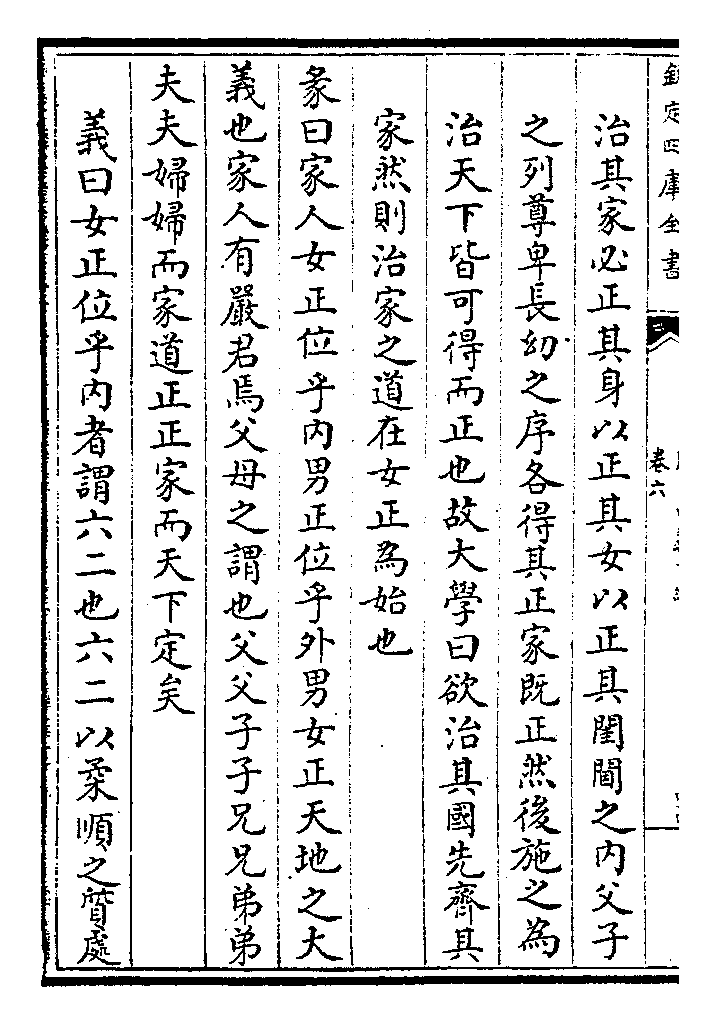 欽定四庫全書
卷六
治其家必正其身以正其女以正其閨閫之内父子
之列尊卑長幼之序各得其正家既正然後施之為
治天下皆可得而正也故大學曰欲治其國先齊其
家然則治家之道在女正為始也
彖曰家人女正位乎内男正位乎外男女正天地之大
義也家人有嚴君焉父母之謂也父父子子兄兄弟弟
夫夫婦婦而家道正正家而天下定矣
義曰女正位乎内者謂六二也六二以柔順之質處